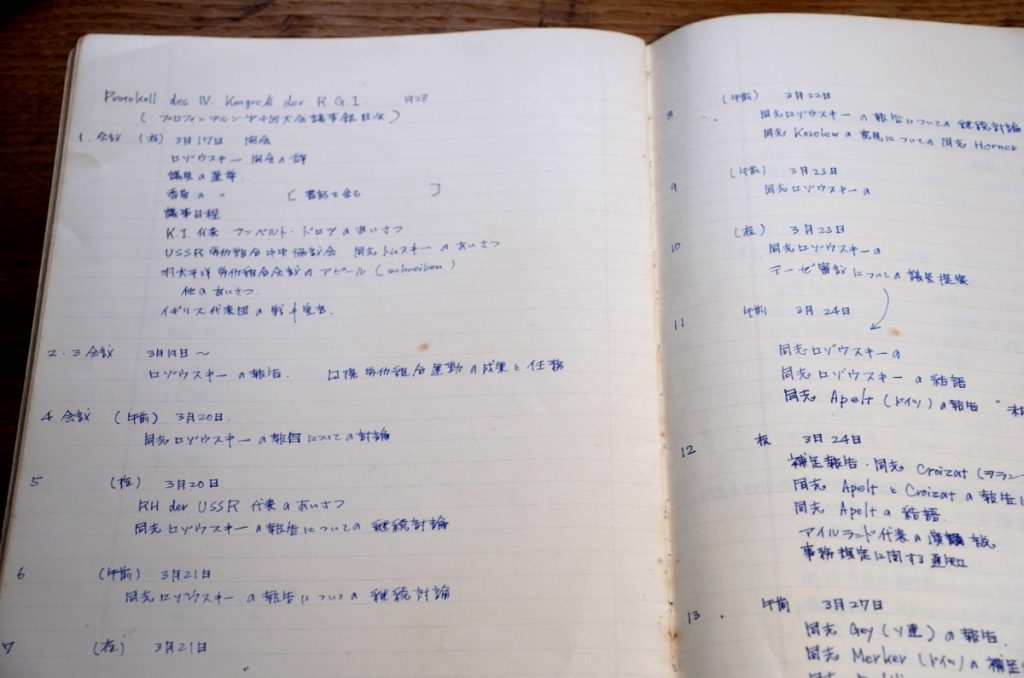 Protokoll des IV. Kongreß der R.G.I. 1928
(プロフィンテルン第4回大会議事録目次)
1. 会議 (夜) 3月17日 開会
ロゾウスキー 開会の辞
議長の選挙
委員の 〃 [ 書記を含む ]
議事日程
K.I. 代表 フンベルト・ドロツのあいさつ
USSR 労働組合中央協議会 同志トムスキーのあいさつ
汎太平洋労働組合会議のアピール (schreiben)
他のあいさつ.
イギリス代表団の宣言.
2.3 会議 3月19日 〜
ロゾウスキーの報告. 国際労働組合運動の成果と任務
4 会議 (午前) 3月20日.
同志ロゾウスキーの報告についての討論
5 (夜) 3月20日
RH der USSR 代表のあいさつ
同志ロゾウスキーの報告についての継続討論
6 (午前) 3月21日
同志ロゾウスキーの報告についての継続討論
7 (夜) 3月21日
〃
8 (午前) 3月22日
同志ロゾウスキーの報告についての継続討論
同志 Koselewの意見についての同志 Horner
9 (午前) 3月23日
同志ロゾウスキーの
10 (夜) 3月23日
同志ロゾウスキーの
テーゼ審議についての議長提案
11 午前 3月24日
同志ロゾウスキーの
同志ロゾウスキーの結語
同志 Apelt (ドイツ)の報告 "
12 夜 3月24日
補足報告・同志 Croizat (フラン
同志 Apelt と Croizat の報告に
同志 Apeltの結語.
アイルランド代表の演説
事務規定に関する通知
13 午前 3月27日
同志 Gey (ソ連)の報告.
同志 Merker (ドイツ)の補足
同志